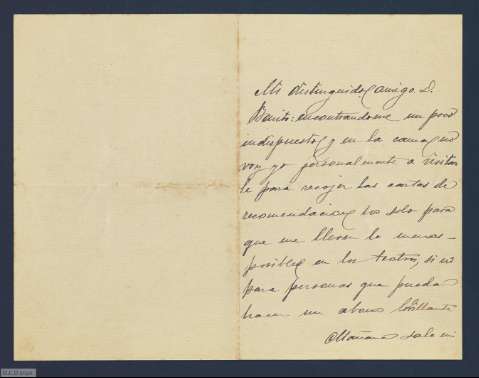 Mi distinguido amigo D.
Benito: encontrandome un poco
indispuesto y en la cama no
voy yo personalmente a visitar
le para recojer las cartas de
recomendacion, no solo para
que me lleven lo menos
posible en los teatros, si no
para personas que puedan
hacer un abono brillante
Mañana sale mi